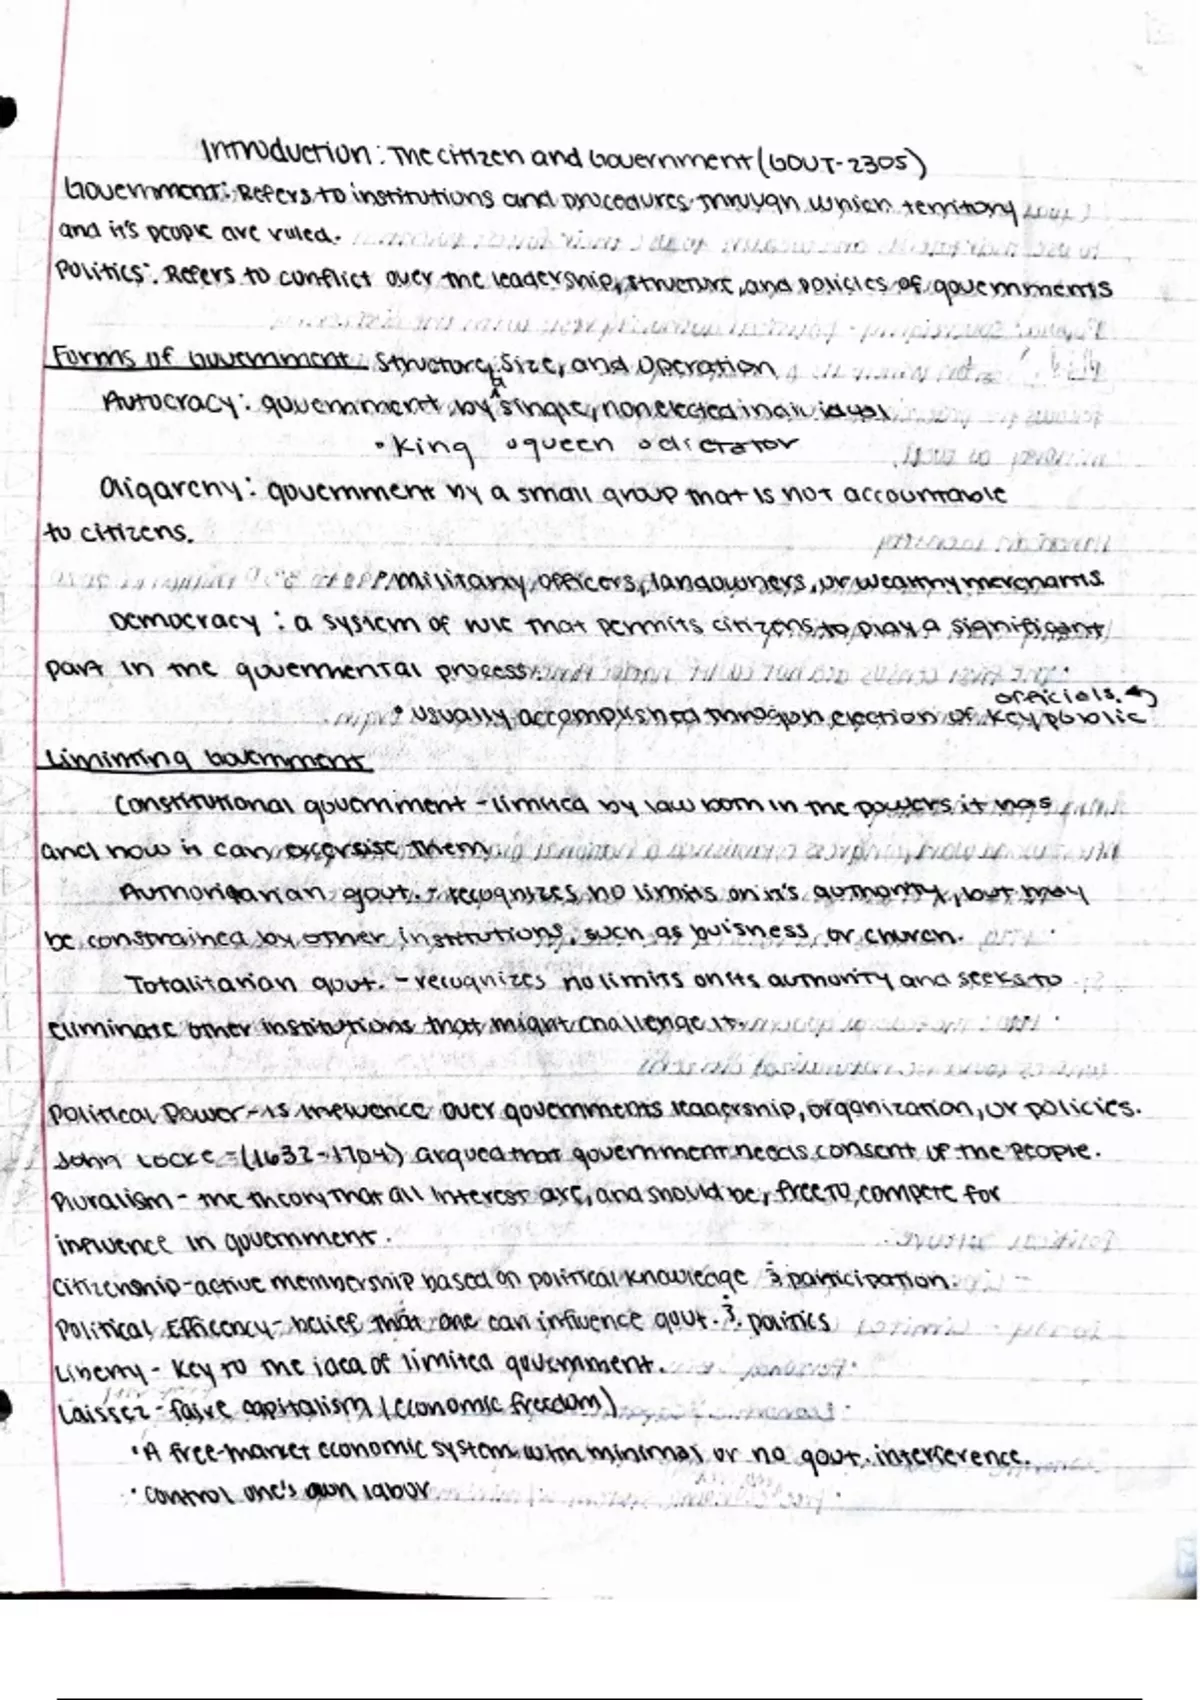 Introduction: The citizen and Government (GOVT-2305)
Government: Refers to institutions and procedures through which territory
and it's people are ruled.
Politics: Refers to conflict over the leadership, structure, and policies of governments
Forms of Government Structure, Size, and Operation
Autocracy: government by a single, nonelected individual
• King • queen • dictator
Oligarchy: government by a small group that is not accountable
to citizens.
• Military officers, landowners, or wealthy merchants
Democracy: a system of rule that permits citizens to play a significant
part in the governmental process.
• Usually accomplished through election of key public officials.
Limiting Government
Constitutional government - limited by law both in the powers it has
and how it can excersise them
Authoritarian govt. - recognizes no limits on it's authority, but may
be constrained by other institutions, such as buisness, or church.
Totalitarian govt. - recognizes no limits on its authority and seeks to
eliminate other institutions that might challenge it.
Political Power - is influence over governments leadership, organization, or policies.
John Locke - (1632-1704) argued that government needs consent of the People.
Pluralism - the theory that all interest are, and should be, free to compete for
influence in government.
Citizenship - active membership based on political knowledge & participation.
Political Efficency - belief that one can influence govt. & politics
Liberty - Key to the idea of limited government.
Laissez-faire capitalism (economic freedom)
• A free-market economic system with minimal or no govt. interference.
• control one's own labor